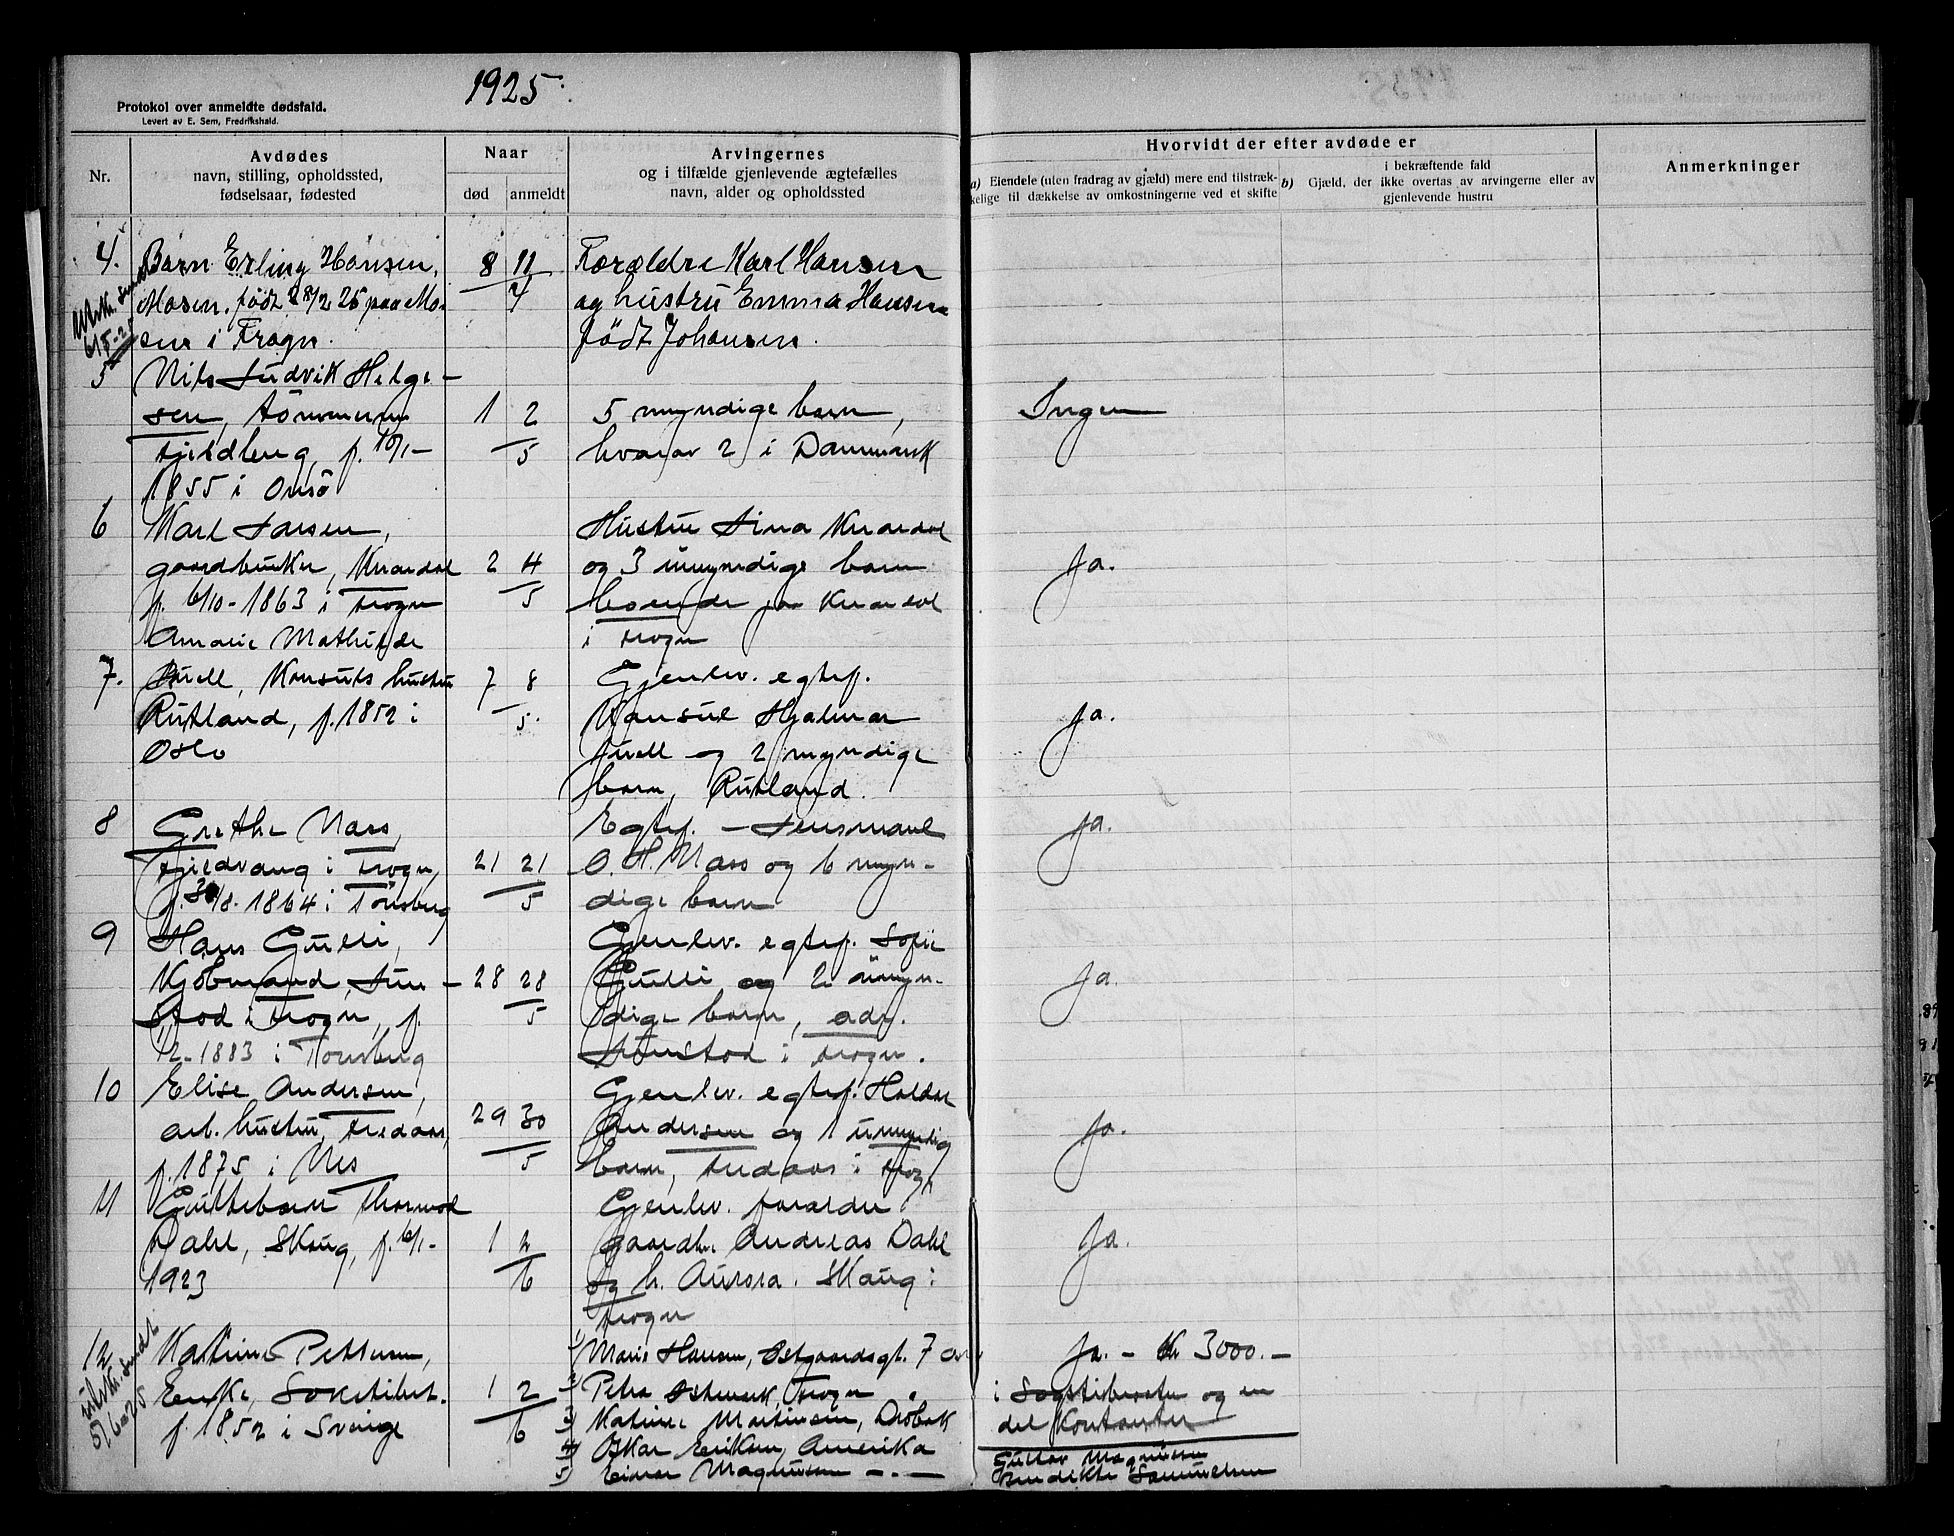 1925
Protokol over anmeldte dødsfald.
Levert av E. Sem, Fredrikshald.
Nr.
Avdødes
navn, stilling, opholdssted,
fødselsaar, fødested
Naar
død
anmeldt
Arvingernes
og i tilfælde gjenlevende ægtefælles
navn, alder og opholdssted
Hvorvidt der efter avdøde er
a) Eiendele (uten fradrag av gjæld) mere end tilstræk-
kelige til dækkelse av omkostningerne ved et skifte
b) Gjæld, der i bekræftende fald
ikke overtas av arvingerne eller av
gjenlevende hustru
Anmerkninger
4.
Barn Erling Hansen,
Mosen. født 28/2 25 paa Mo-
sen i Frogn.
8 11
4
Forældre Karl Hansen
og hustru Emma Hansen
født Johansen.
5
Nils Ludvik Helge-
sen, tømmerm
Fjeldberg, f. 10/1-
1855 i Onsö
1 2
5
5 myndige barn,
hvorav 2 i Danmark
Ingen
6
Karl Larsen,
gaardbruker, Knardal
f. 6/10-1863 i Frogn
2 4
5
Hustru Lina Knardal
og 3 umyndige barn
boende paa Knardal
i Frogn
Ja.
7.
Amalie Mathilde
Juell, Konsuls hustru
Rutland, f. 1852 i
Oslo
7 8
5.
Gjenlev. egtef.
Konsul Hjalmar
Juell og 2 myndige
barn, Rutland.
Ja.
8
Grethe Nass,
Fjeldvang i Frogn,
f. 30/8-1864 i Tönsberg
21 21
5
Egtef. - Lensmand
O. H. Nass og 6 myn-
dige barn
Ja.
9
Hans Gulli,
Kjöbmand, Sun-
stad i Frogn, f.
1883 i Tonsberg
28 28
5
Gjenlev. egtef. Sofie
Gulli og 2 umyn-
dige barn, adr.
i Frogn.
Ja.
10
Elise Andersen,
arb. hustru, Fredaas,
f. 1875 i Nes
29 30
5
Gjenlev. egtef. Haldor
Andersen og 1 umyndig
barn, Fredaas i Frogn
Ja.
11
Guttebarn Thormod
Dahl, Skaug, f. 6/1-
1923
1 2
6
Gjenlev. forældre
gaardbr. Andreas Dahl
og h. Aurora. Skaug i
Frogn
Ja.
12
Katrine Pettersen,
Enke, f. 1852 i Sverige
1 2
6
1) Marie Hansen, Østgaardsgt. 7
2) Petra Frogn
3) Katrine Martinsen, Dröbak
4) Oskar Eriksen, Amerika
5) Einar Magnussen - . -
Ja. - Kr 3000. -
i og en
del Kontanter
Gustav Magnussen
Samuelsen